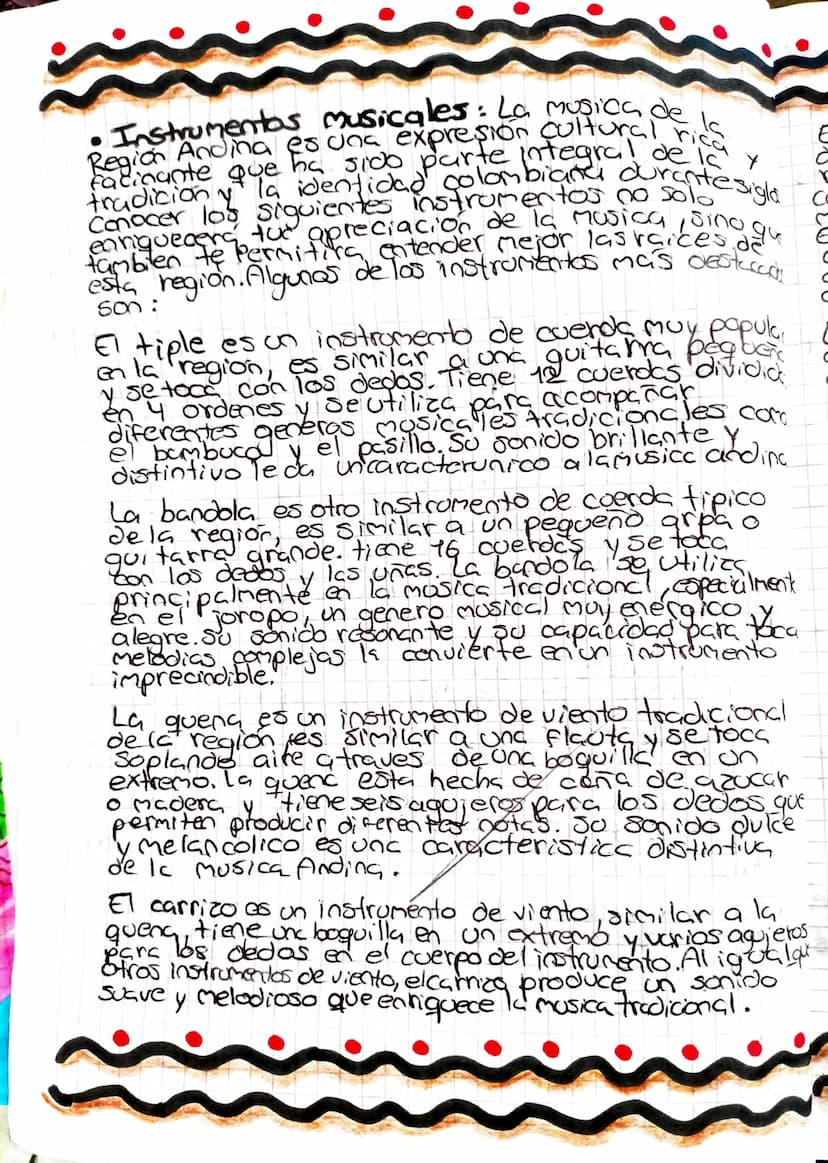 • Instrumentos musicales: La musica de la
Región Andina es una expresión cultural rica
facinante que ha sido parte integral de la y
tradición y la identidad colombiana durante siglo
Conocer los siguientes instrumentos no solo
enriquecerá tu apreciación de la musica, sino qu
tambien te Permitira entender mejor las raices de
esta región. Algunos de los instrumentos mas destacad
son:
El tiple es un instrumento de cuerda muy popula
en la region, es similar a una guitarra pequeñ
y se toca con los dedos. Tiene 12 cuerdas dividid
en 4 ordenes y se utiliza para acompañar
diferentes generos musicales tradicionales com
el bambuco y el pasillo. Su sonido brillante y
distintivo le da un caracter unico a la musica andina
La bandola es otro instrumento de cuerda tipico
de la región, es similar a un pequeño arpa o
guitarra grande. tiene 16 cuerdas y se toca
con los dedos y las uñas. La bandola se utiliza
principalmente en la musica tradicional, especialment
en el joropo, un genero musical muy energico y
alegre. su sonido resonante y su capacidad para toca
melodias complejas la convierte en un instrumento
imprecindible.
La quena es un instrumento de viento tradicional
de la región, es similar a una flauta y se toca
soplando aire a traves de una boquilla en un
extremo. La quena esta hecha de caña de azucar
o madera y tiene seis agujeros para los dedos que
permiten producir diferentes notas. Su sonido dulce
y melancólico es una caracteristica distintiva
de la musica Andina.
El carrizo es un instrumento de viento, similar a la
quena, tiene una boquilla en un extremo y varios agujeros
para los dedos en el cuerpo del instrumento. Al igual qu
otros instrumentos de viento, el carrizo produce un sonido
suave y melodioso que enriquece la musica tradicional.